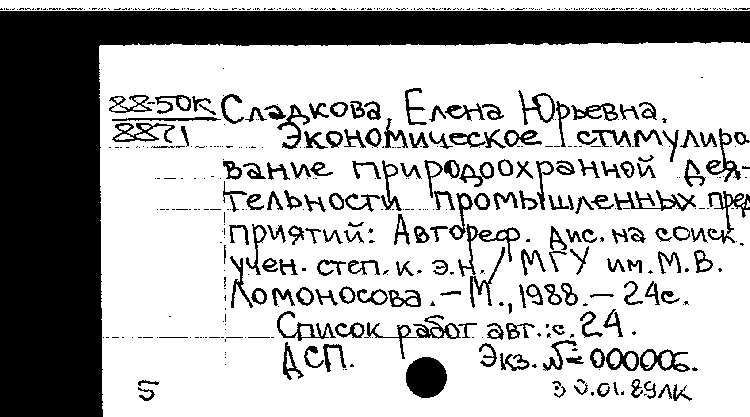 88-50К Сладкова, Елена Юрьевна.
8871 Экономическое стимулиро
вание природоохранной дея-
тельности промышленных пред
приятий: Автореф. дис. на соиск.
учен. степ. к. э.н. / МГУ им. М.В.
Ломоносова. – М., 1988. – 24с.
Список работ авт.: с. 24.
ДСП. Экз. № 000006.
5 30.01.89ЛК